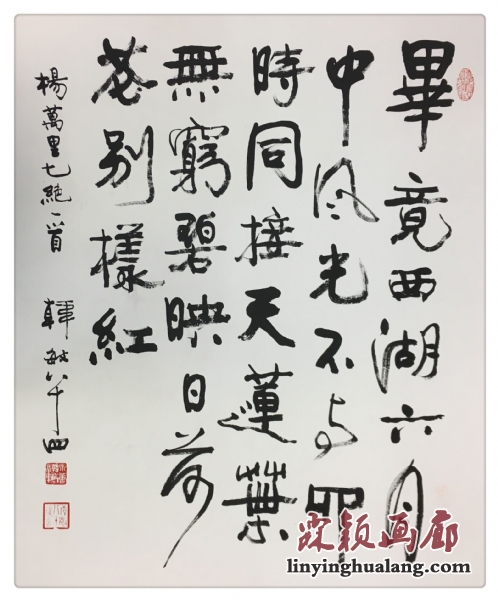 畢竟西湖六月
中风光不与四
時同接天蓮葉
無窮碧映日荷
花别樣紅
楊萬里七絶一首 韓敏八十四
霖颖画廊
linyinghualang.com